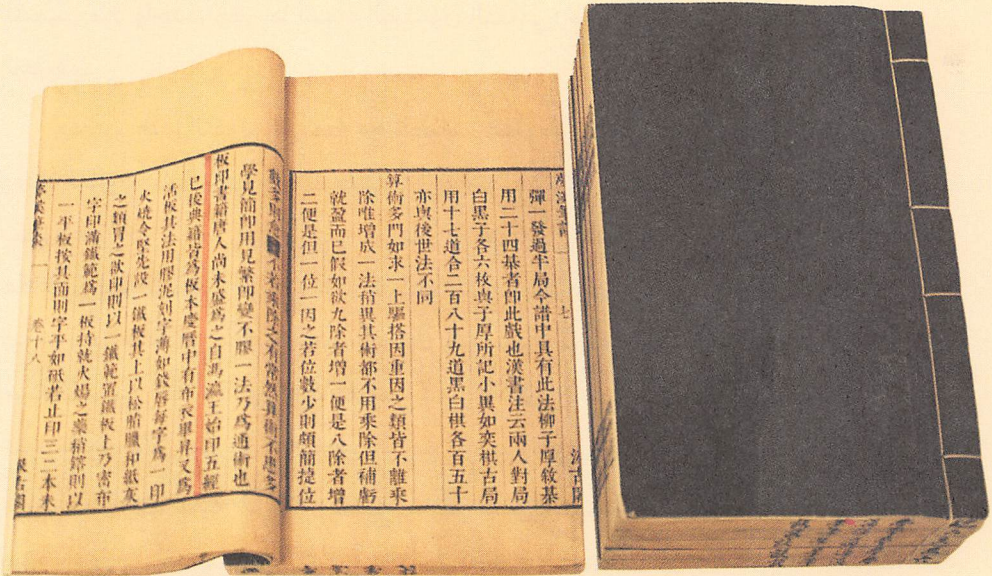 彈一發過半局今譜中具有此法柳子厚敘棊
用二十四棊者即此戲也漢書注云兩人對局
白黑子各六枚與子厚所記小異如奕棋古局
用十七道合二百八十九道黑白棋各百五十
亦與後世法不同
算術多門如求一上驅搭因重因之類皆不離乘
除唯增成一法稍異其術都不用乘除但補虧
就盈而已假如欲九除者增一便是八除者增
二便是但一位一因之若位數少則頗簡捷位
數多則愈繁不若乘除之有常然算術不患多
學見簡即用見繁即變不膠一法乃為通術也
板印書籍唐人尚未盛為之自馮瀛王始印五經
已後典籍皆為板本慶曆中有布衣畢昇又為
活板其法用膠泥刻字薄如錢唇每字為一印
火燒令堅先設一鐵板其上以松脂臘和紙灰
之類冒之欲印則以一鐵範置鐵板上乃密布
字印滿鐵範為一板持就火煬之藥稍鎔則以
一平板按其面則字平如砥若止印三二本未
卷十八
汲古閣